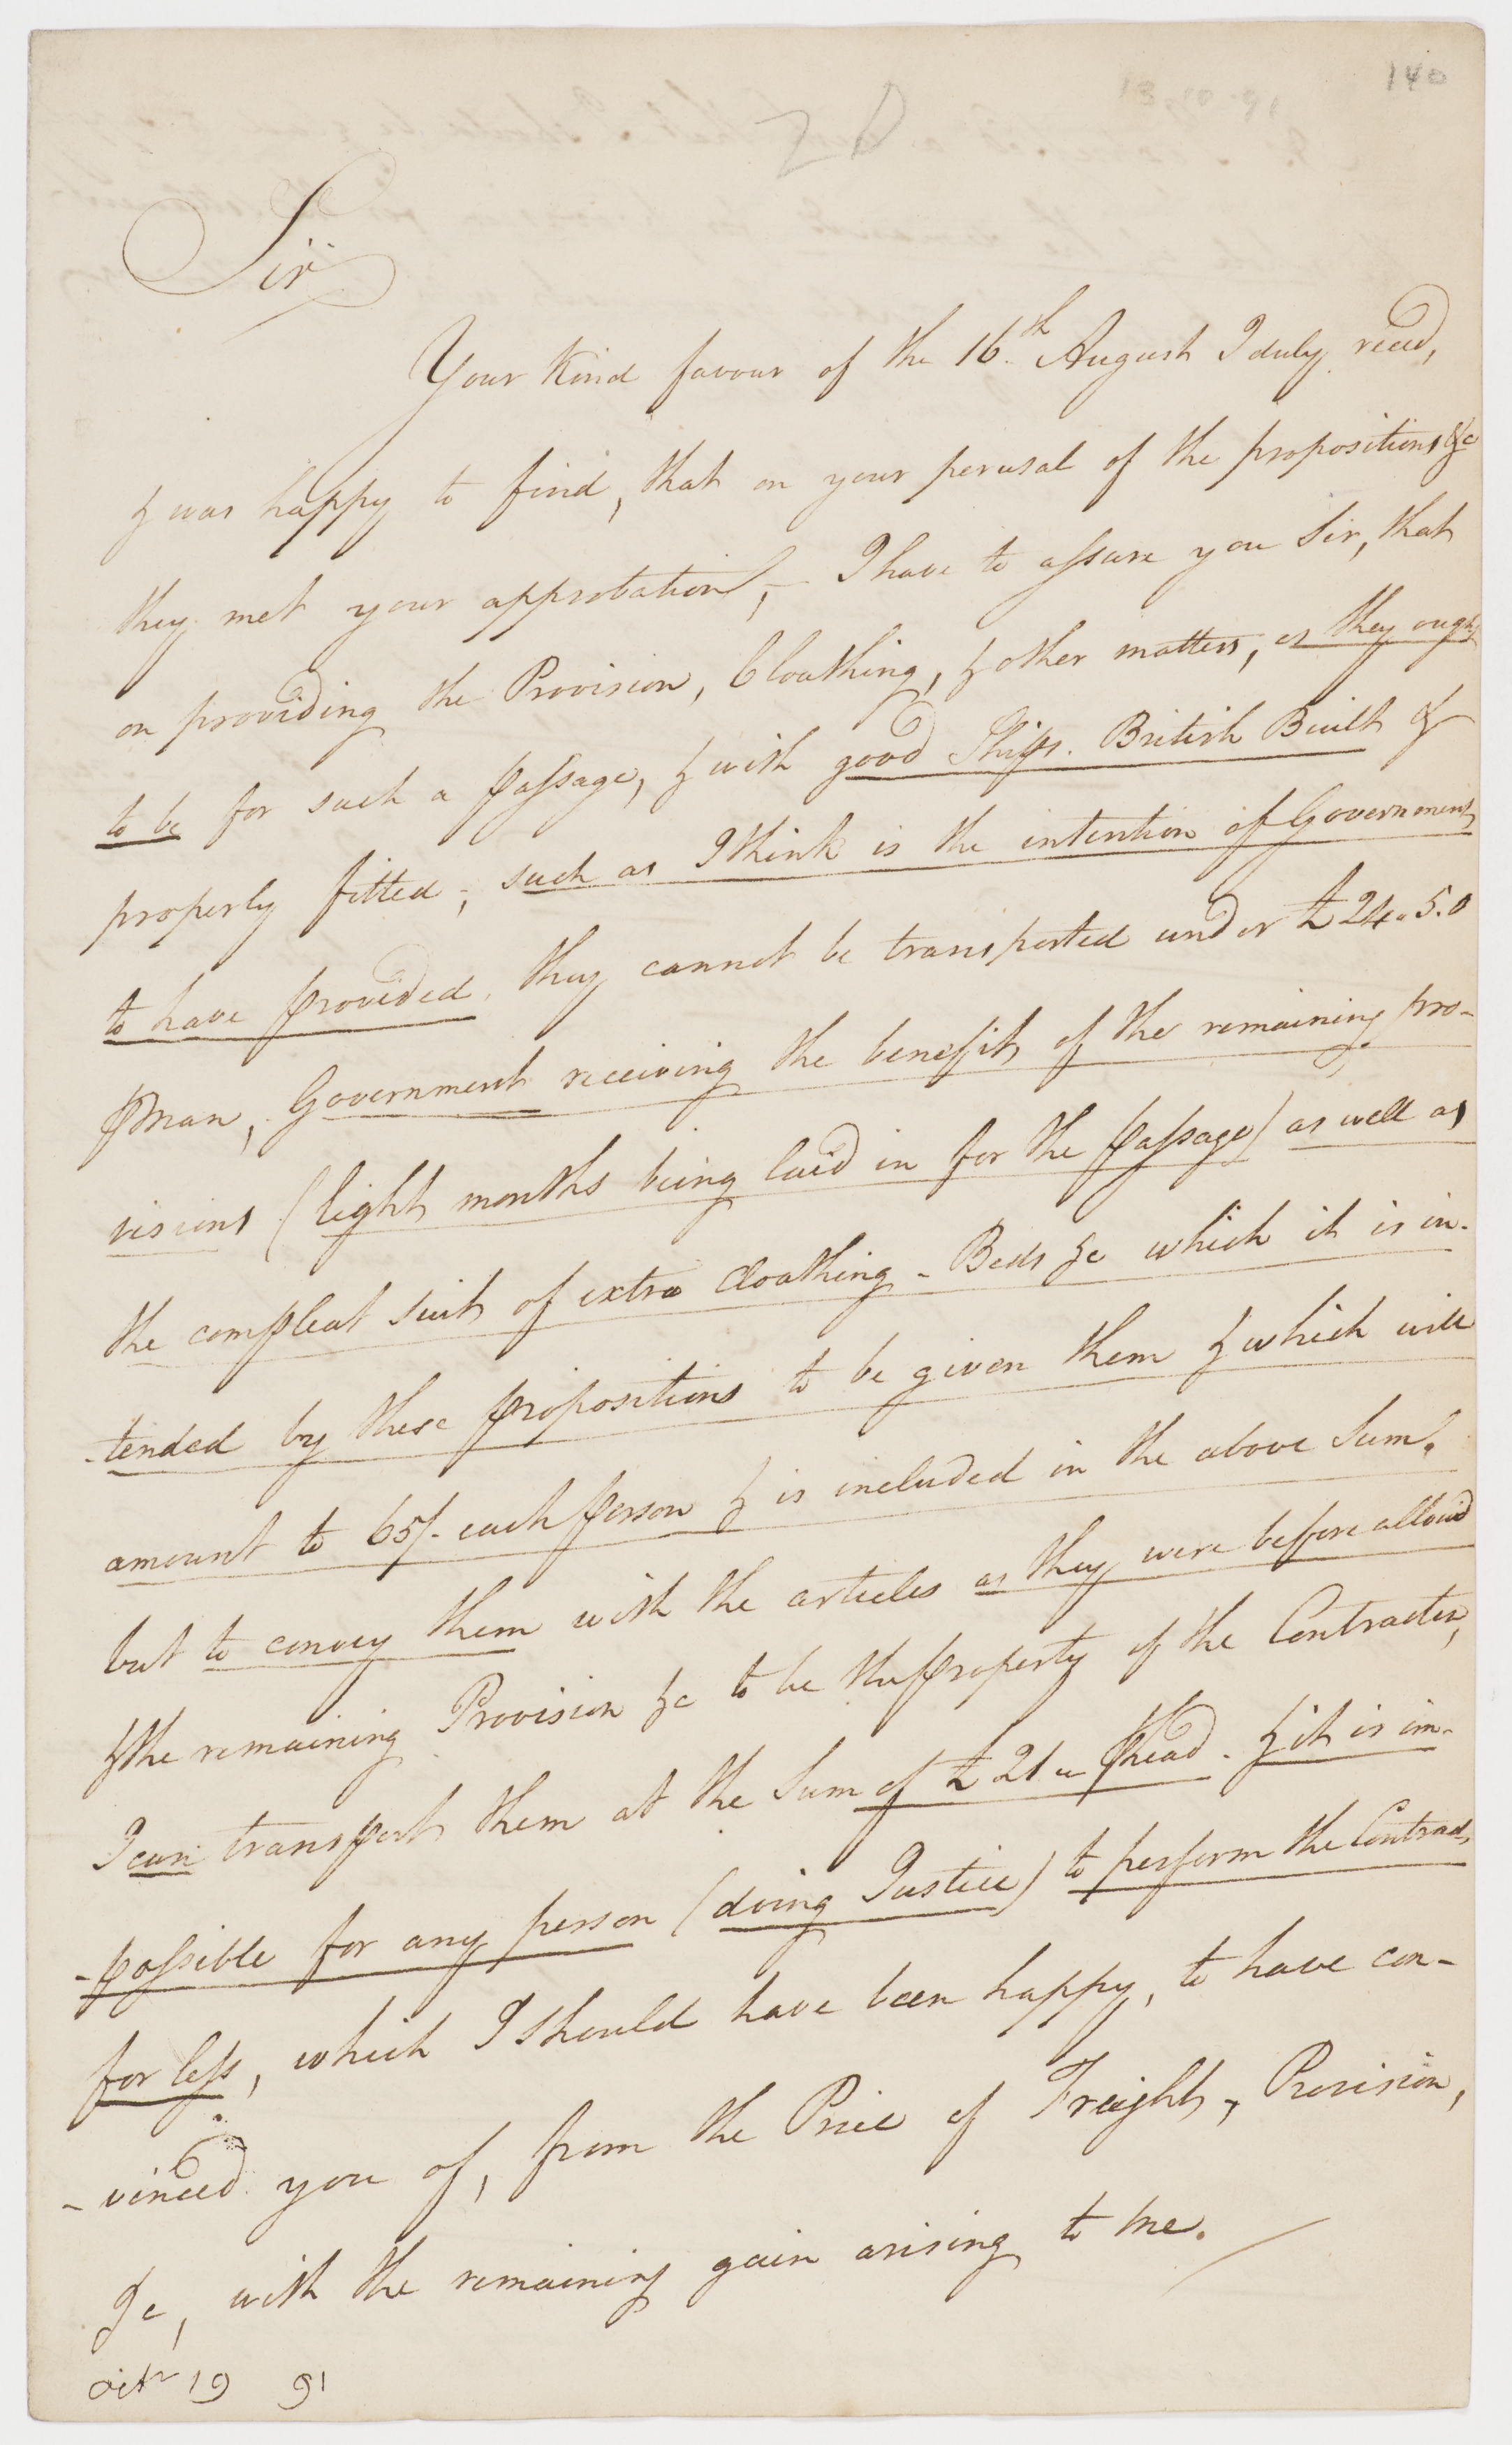 140
Sir
Your Kind favour of the 16th August I duly recd,
& was happy to find, that on your perusal of the propositions &c
they met your approbation, – I have to assure you Sir, that
on providing the Provision, Cloathing, & other matters, as they ought
to be for such a passage, & with good Ships. British Built &
properly fitted; such as I think is the intention of Government
to have provided, they cannot be transported under £24.5.0
⅌ Man, Government receiving the benefit of the remaining pro-
visions (Eight months being laid in for the passage) as well as
the compleat suit of extra Cloathing – Beds &c which it is in-
-tended by these propositions to be given them & which will
amount to 65/- each person & is included in the above Sum.
but to convey them with the articles as they were before allowd
& the remaining Provision &c to be the property of the Contractor,
I can transport them at the Sum of £21 " ⅌ head. & it is im-
-possible for any person (doing Justice) to perform the Contract
for less, which I should have been happy, to have con-
-vinced you of, from the Price of Freight, Provision,
&c, with the remaining gain arising to me.
octr 19 91